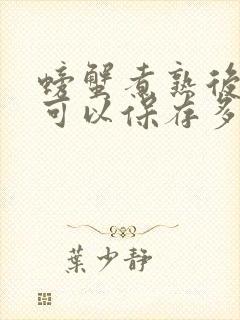 螃蟹煮熟後
可以保存多
葉少靜